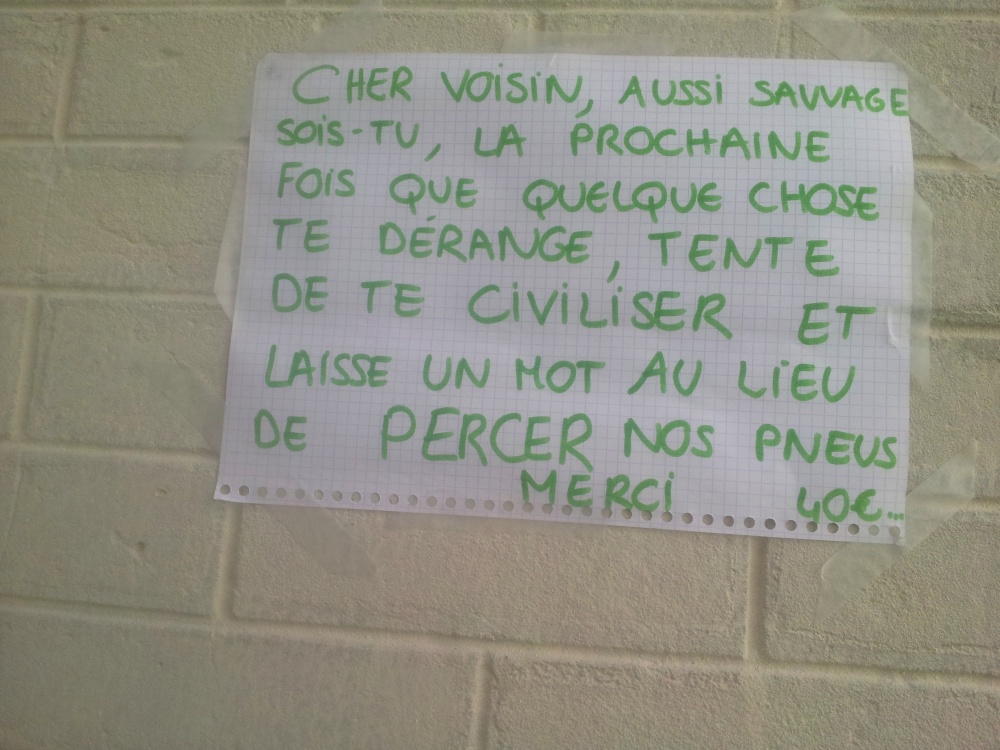 CHER VOISIN, AUSSI SAUVAGE
SOIS-TU, LA PROCHAINE
FOIS QUE QUELQUE CHOSE
TE DÉRANGE, TENTE
DE TE CIVILISER ET
LAISSE UN MOT AU LIEU
DE PERCER NOS PNEUS
MERCI 40€...